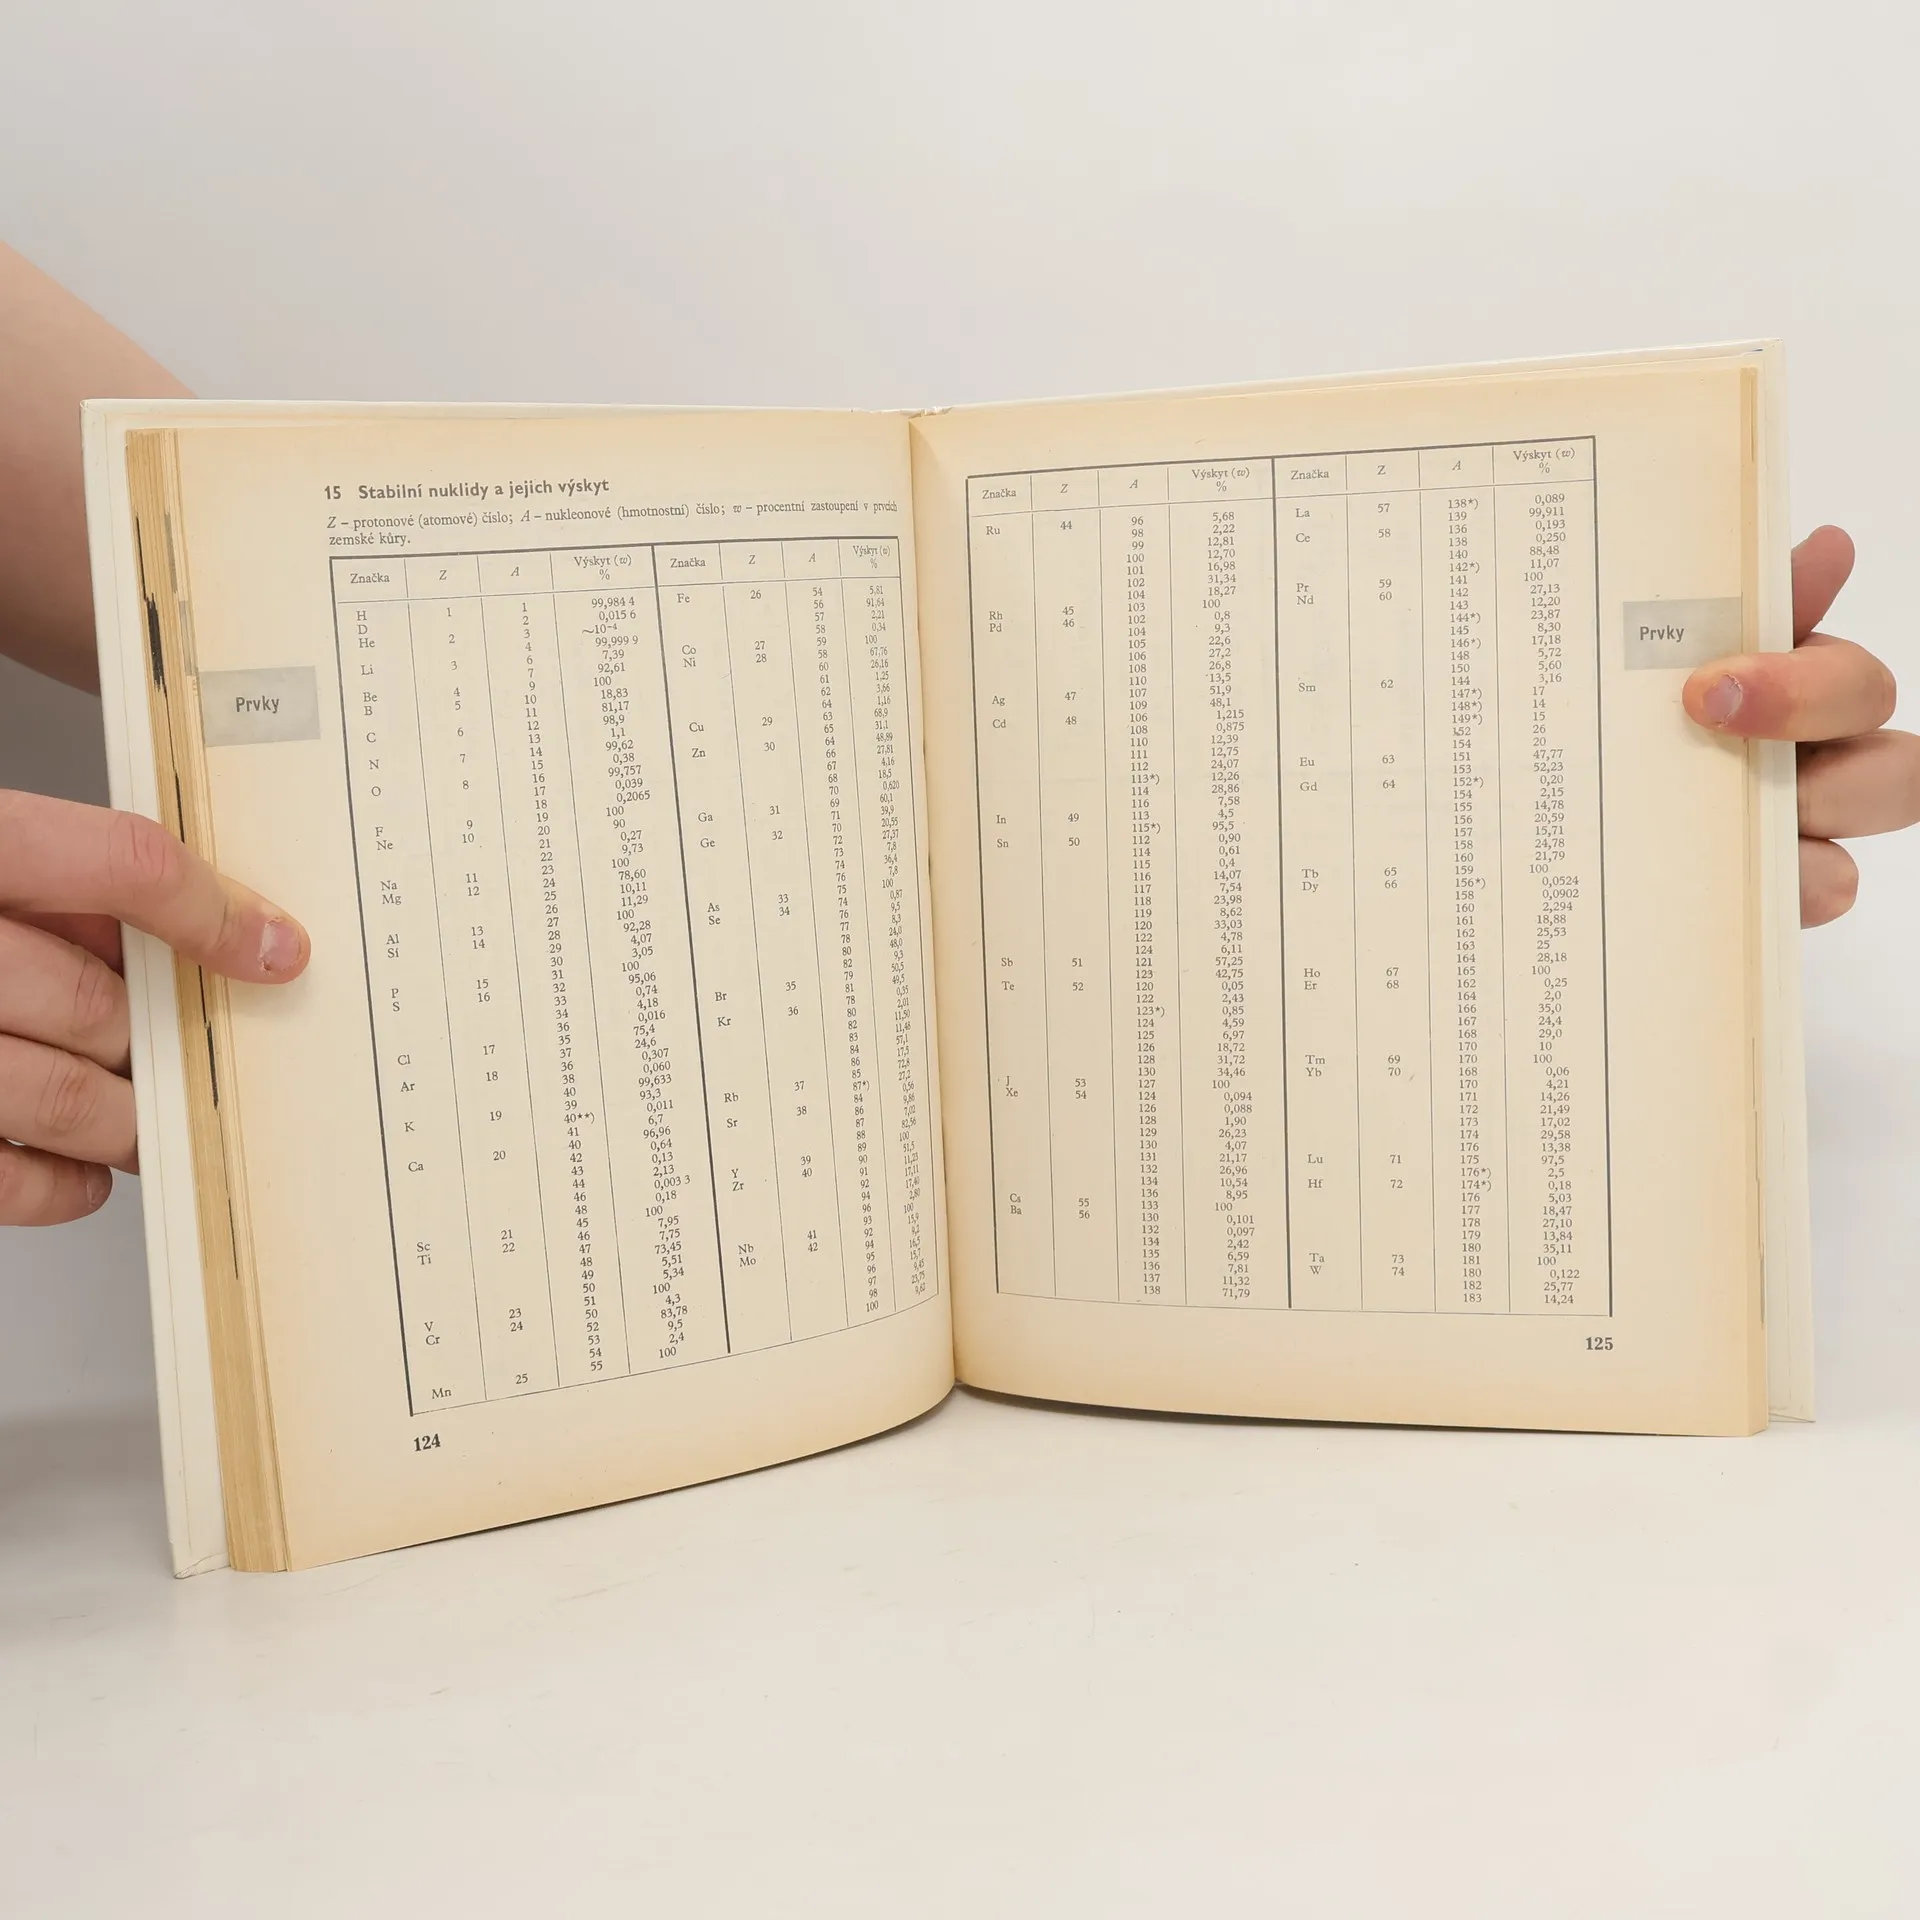 15 Stabilní nuklidy a jejich výskyt
Z – protonové (atomové) číslo; A – nukleonové (hmotnostní) číslo; w – procentní zastoupení v prvcích
zemské kůry.
Značka Z A Výskyt (w) %
H 1 1 99,984 4
D 2 0,015 6
He 2 3 ~10⁻⁴
4 99,999 9
Li 3 6 7,39
7 92,61
Be 4 9 100
B 5 10 18,83
11 81,17
C 6 12 98,9
13 1,1
N 7 14 99,62
15 0,38
O 8 16 99,757
17 0,039
18 0,2065
F 9 19 100
Ne 10 20 90
21 0,27
22 9,73
Na 11 23 100
Mg 12 24 78,60
25 10,11
26 11,29
Al 13 27 100
Si 14 28 92,28
29 4,07
30 3,05
P 15 31 100
S 16 32 95,06
33 0,74
34 4,18
36 0,016
Cl 17 35 75,4
37 24,6
Ar 18 36 0,307
38 0,060
40 99,633
K 19 39 93,3
40**) 0,011
41 6,7
Ca 20 40 96,96
42 0,64
43 0,13
44 2,13
46 0,003 3
48 0,18
Sc 21 45 100
Ti 22 46 7,95
47 7,75
48 73,45
49 5,51
50 5,34
V 23 51 100
Cr 24 50 4,3
52 83,78
53 9,5
54 2,4
Mn 25 55 100
Značka Z A Výskyt (w) %
Fe 26 54 5,81
56 91,64
57 2,21
58 0,34
Co 27 59 100
Ni 28 58 67,76
60 26,16
61 1,25
62 3,66
64 1,16
Cu 29 63 68,9
65 31,1
Zn 30 64 48,89
66 27,81
67 4,16
68 18,5
70 0,620
Ga 31 69 60,1
71 39,9
Ge 32 70 20,55
72 27,37
73 7,8
74 36,4
76 7,8
As 33 75 100
Se 34 74 0,87
76 9,5
77 8,3
78 24,0
80 48,0
82 9,3
Br 35 79 50,5
81 49,5
Kr 36 78 0,35
80 2,01
82 11,50
83 11,48
84 57,1
86 17,5
Rb 37 85 72,8
87*) 27,2
Sr 38 84 0,56
86 9,86
87 7,02
88 82,56
Y 39 89 100
Zr 40 90 51,5
91 11,23
92 17,11
94 17,40
96 2,80
Nb 41 93 100
Mo 42 92 15,9
94 9,2
95 16,5
96 15,7
97 9,45
98 23,75
100 9,62
Prvky
124
Značka Z A Výskyt (w) %
Ru 44 96 5,68
98 2,22
99 12,81
100 12,70
101 16,98
102 31,34
104 18,27
Rh 45 103 100
Pd 46 102 0,8
104 9,3
105 22,6
106 27,2
108 26,8
110 13,5
Ag 47 107 51,9
109 48,1
Cd 48 106 1,215
108 0,875
110 12,39
111 12,75
112 24,07
113*) 12,26
114 28,86
116 7,58
In 49 113 4,5
115*) 95,5
Sn 50 112 0,90
114 0,61
115 0,4
116 14,07
117 7,54
118 23,98
119 8,62
120 33,03
122 4,78
124 6,11
Sb 51 121 57,25
123 42,75
Te 52 120 0,05
122 2,43
123*) 0,85
124 4,59
125 6,97
126 18,72
128 31,72
130 34,46
J 53 127 100
Xe 54 124 0,094
126 0,088
128 1,90
129 26,23
130 4,07
131 21,17
132 26,96
134 10,54
136 8,95
Cs 55 133 100
Ba 56 130 0,101
132 0,097
134 2,42
135 6,59
136 7,81
137 11,32
138 71,79
Značka Z A Výskyt (w) %
La 57 138*) 0,089
139 99,911
Ce 58 136 0,193
138 0,250
140 88,48
142*) 11,07
Pr 59 141 100
Nd 60 142 27,13
143 12,20
144*) 23,87
145 8,30
146*) 17,18
148 5,72
150 5,60
Sm 62 144 3,16
147*) 17
148*) 14
149*) 15
152 26
154 20
Eu 63 151 47,77
153 52,23
Gd 64 152*) 0,20
154 2,15
155 14,78
156 20,59
157 15,71
158 24,78
160 21,79
Tb 65 159 100
Dy 66 156*) 0,0524
158 0,0902
160 2,294
161 18,88
162 25,53
163 25
164 28,18
Ho 67 165 100
Er 68 162 0,25
164 2,0
166 35,0
167 24,4
168 29,0
170 10
Tm 69 170 100
Yb 70 168 0,06
170 4,21
171 14,26
172 21,49
173 17,02
174 29,58
176 13,38
Lu 71 175 97,5
176*) 2,5
Hf 72 174*) 0,18
176 5,03
177 18,47
178 27,10
179 13,84
180 35,11
Ta 73 181 100
W 74 180 0,122
182 25,77
183 14,24
Prvky
125